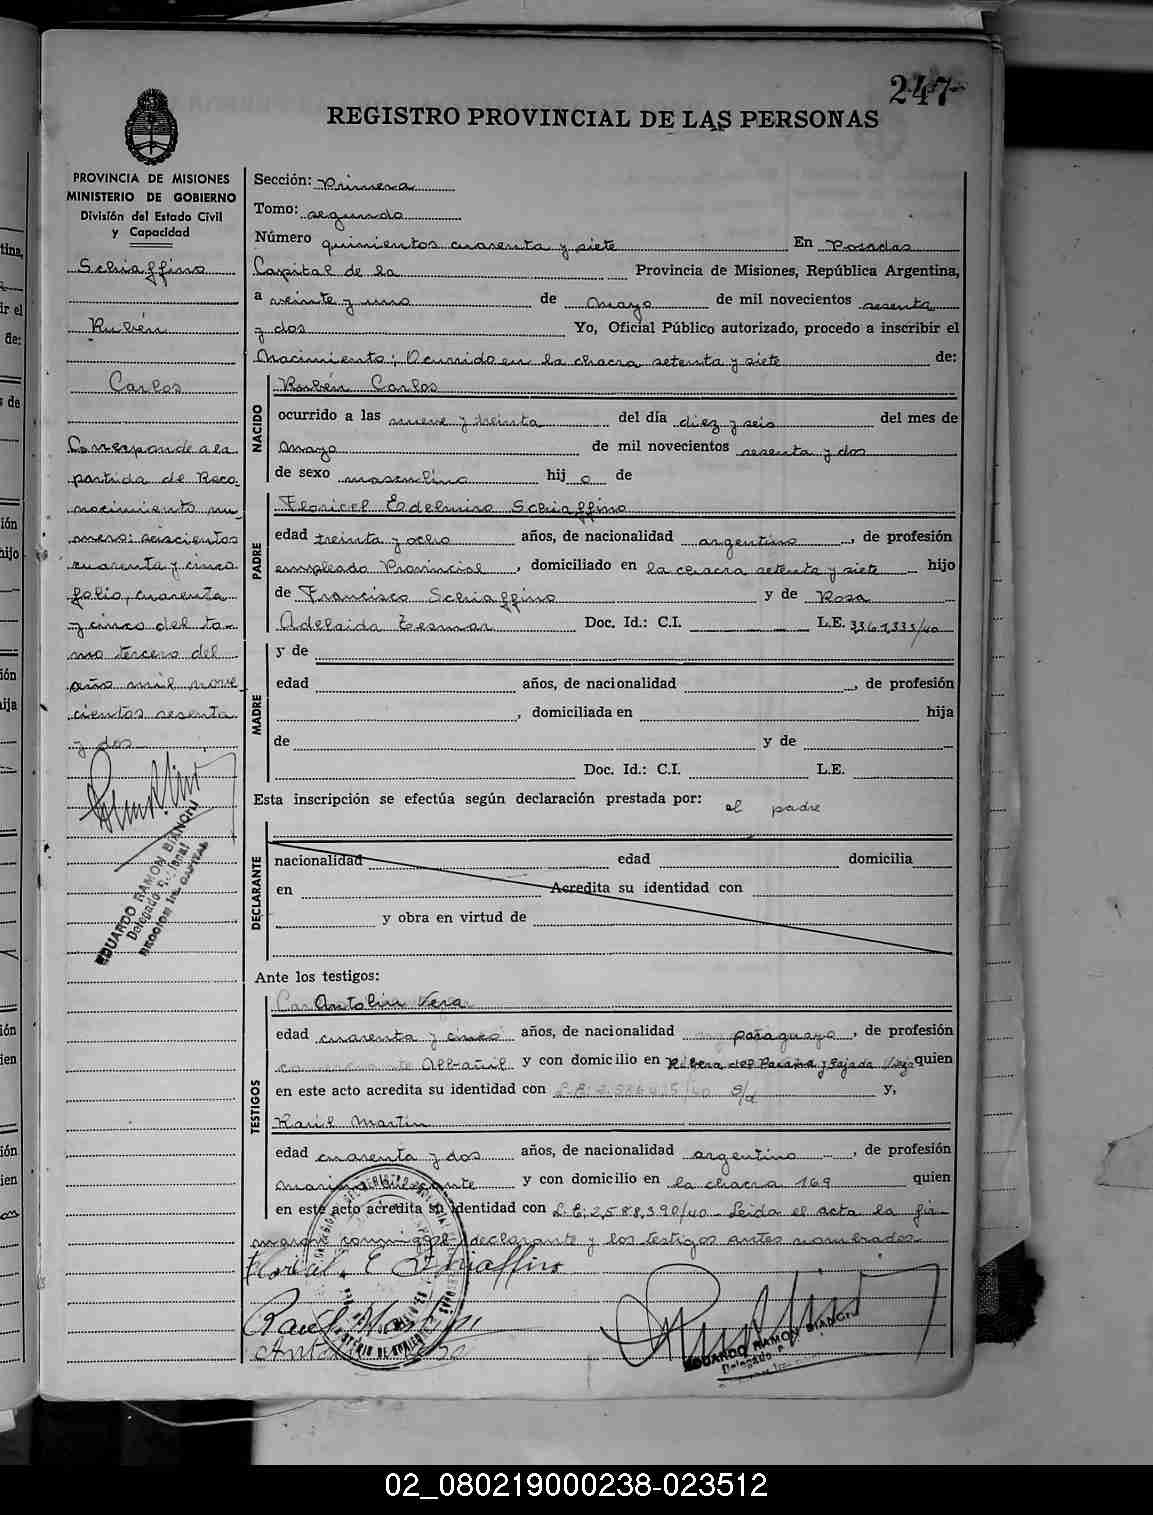 247
REGISTRO PROVINCIAL DE LAS PERSONAS
PROVINCIA DE MISIONES
MINISTERIO DE GOBIERNO
División del Estado Civil
y Capacidad
Schiaffino
Rubén
Carlos
Corresponde a la
partida de Reco
nocimiento nu_
mero: seiscientos
cuarenta y cinco
folio, cuarenta
y cinco del to-
mo tercero del
año mil nove
cientos sesenta
y dos
EDUARDO RAMON BIANCHI
Delegado
Sección: Primera
Tomo: segundo
Número quinientos cuarenta y siete En Posadas
Capital de la Provincia de Misiones, República Argentina,
a veinte y uno de Mayo de mil novecientos sesenta
y dos Yo, Oficial Público autorizado, procedo a inscribir el
Nacimiento; Ocurrido en la chacra setenta y siete de:
NACIDO
Rubén Carlos
ocurrido a las nueve y treinta del día diez y seis del mes de
Mayo de mil novecientos sesenta y dos
de sexo masculino hij o de
PADRE
Floricel Edelmiro Schiaffino
edad treinta y ocho años, de nacionalidad argentino, de profesión
empleado Provincial, domiciliado en la chacra setenta y siete hijo
de Francisco Schiaffino y de Rosa
Adelaida Doc. Id.: C.I. L.E.
MADRE
y de
edad años, de nacionalidad , de profesión
, domiciliada en hija
de y de
Doc. Id.: C.I. L.E.
Esta inscripción se efectúa según declaración prestada por: el padre
DECLARANTE
nacionalidad edad domicilia
en Acredita su identidad con
y obra en virtud de
Ante los testigos:
TESTIGOS
Antolin Vera
edad cuarenta y cinco años, de nacionalidad paraguayo, de profesión
Albañil y con domicilio en Ribera del Paraná y Bajada Vieja quien
en este acto acredita su identidad con S/d y,
Raúl Martin
edad cuarenta y dos años, de nacionalidad argentino, de profesión
y con domicilio en la chacra 169 quien
en este acto acredita su identidad con L.E: 2,588,390/40_ Leida el acta la fir
maron conmigo el declarante y los testigos antes nombrados.
E Schiaffino
Raul Martin
EDUARDO RAMON BIANCHI
Delegado
02_080219000238-023512